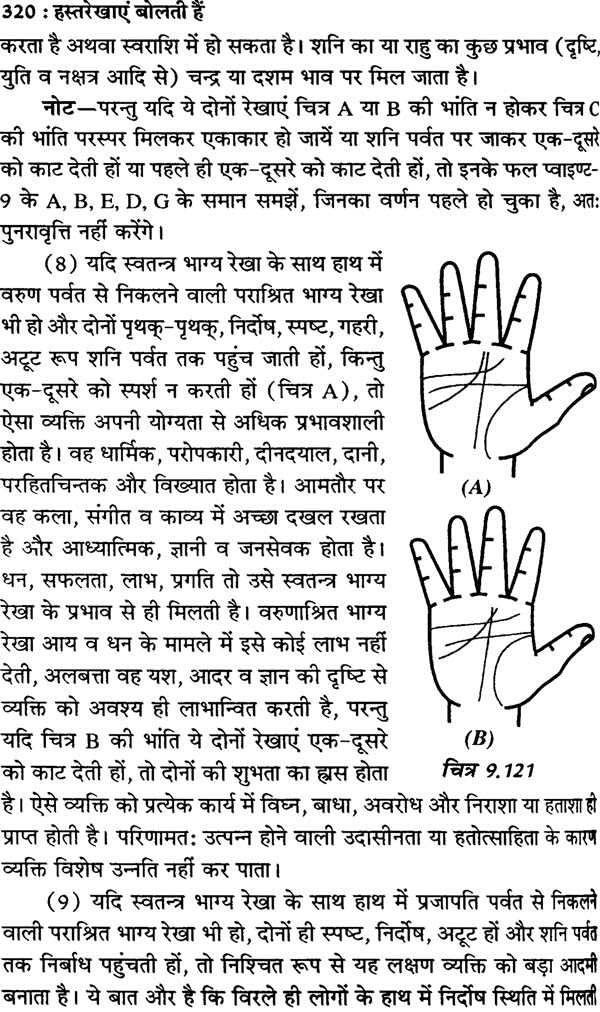 320 : हस्तरेखाएं बोलती हैं
करता है अथवा स्वराशि में हो सकता है। शनि का या राहु का कुछ प्रभाव (दृष्टि,
युति व नक्षत्र आदि से) चन्द्र या दशम भाव पर मिल जाता है।
नोट—परन्तु यदि ये दोनों रेखाएं चित्र A या B की भांति न होकर चित्र C
की भांति परस्पर मिलकर एकाकार हो जायें या शनि पर्वत पर जाकर एक-दूसरे
को काट देती हों या पहले ही एक-दूसरे को काट देती हों, तो इनके फल प्वाइण्ट-
9 के A, B, E, D, G के समान समझें, जिनका वर्णन पहले हो चुका है, अतः
पुनरावृत्ति नहीं करेंगे।
(8) यदि स्वतन्त्र भाग्य रेखा के साथ हाथ में
वरुण पर्वत से निकलने वाली पराश्रित भाग्य रेखा
भी हो और दोनों पृथक्-पृथक्, निर्दोष, स्पष्ट, गहरी,
अटूट रूप शनि पर्वत तक पहुंच जाती हों, किन्तु
एक-दूसरे को स्पर्श न करती हों (चित्र A), तो
ऐसा व्यक्ति अपनी योग्यता से अधिक प्रभावशाली
होता है। वह धार्मिक, परोपकारी, दीनदयाल, दानी,
परहितचिन्तक और विख्यात होता है। आमतौर पर
वह कला, संगीत व काव्य में अच्छा दखल रखता
है और आध्यात्मिक, ज्ञानी व जनसेवक होता है।
धन, सफलता, लाभ, प्रगति तो उसे स्वतन्त्र भाग्य
रेखा के प्रभाव से ही मिलती है। वरुणाश्रित भाग्य
रेखा आय व धन के मामले में इसे कोई लाभ नहीं
देती, अलबत्ता वह यश, आदर व ज्ञान की दृष्टि से
व्यक्ति को अवश्य ही लाभान्वित करती है, परन्तु
यदि चित्र B की भांति ये दोनों रेखाएं एक-दूसरे
को काट देती हों, तो दोनों की शुभता का ह्रास होता
(A)
(B)
चित्र 9.121
है। ऐसे व्यक्ति को प्रत्येक कार्य में विघ्न, बाधा, अवरोध और निराशा या हताशा ही
प्राप्त होती है। परिणामतः उत्पन्न होने वाली उदासीनता या हतोत्साहिता के कारण
व्यक्ति विशेष उन्नति नहीं कर पाता।
(9) यदि स्वतन्त्र भाग्य रेखा के साथ हाथ में प्रजापति पर्वत से निकलने
वाली पराश्रित भाग्य रेखा भी हो, दोनों ही स्पष्ट, निर्दोष, अटूट हों और शनि पर्वत
तक निर्बाध पहुंचती हों, तो निश्चित रूप से यह लक्षण व्यक्ति को बड़ा आदमी
बनाता है। ये बात और है कि विरले ही लोगों के हाथ में निर्दोष स्थिति में मिलती